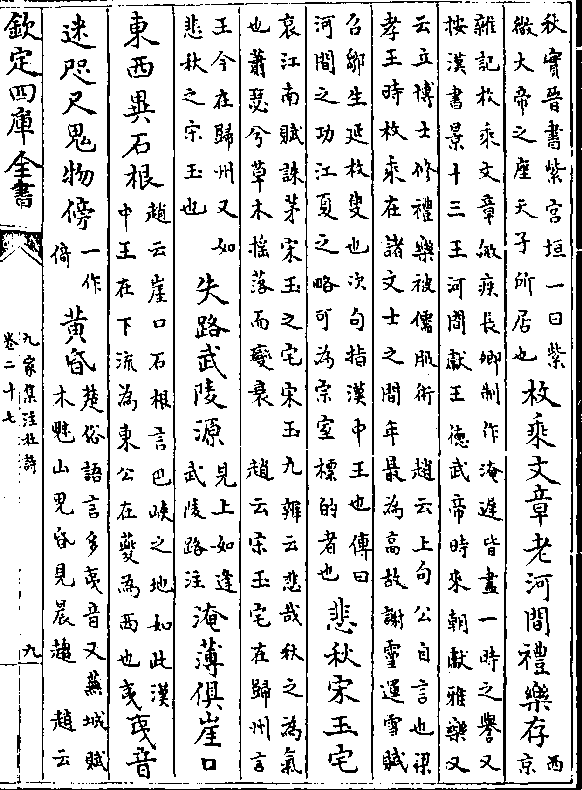 秋實晉書紫宫垣一曰紫
微大帝之座天子所居也
枚乘文章老河間禮樂存
西
京
雜記枚乘文章敏疾長卿制作淹遲皆盡一時之譽又
按漢書景十三王河間獻王德武帝時來朝獻雅樂又
云立博士修禮樂被儒服術 趙云上句公自言也梁
孝王時枚乘在諸文士之間年最為高故謝靈運雪賦
召鄒生延枚叟也次句指漢中王也傳曰
河間之功江夏之略可為宗室標的者也
悲秋宋玉宅
哀江南賦誅茅宋玉之宅宋玉九辯云悲哉秋之為氣
也蕭瑟兮草木揺落而變衰 趙云宋玉宅在歸州言
王今在歸州又如
悲秋之宋玉也
失路武陵源
見上如逢
武陵路注
淹薄俱崖口
東西異石根
趙云崖口石根言巴峽之地如此漢
中王在下流為東公在夔為西也夷
夷音
迷咫尺鬼物傍
一作
倚
黄昏
楚俗語言多夷音又蕪城賦
木魅山鬼昏見晨趨 趙云
欽定四庫全書
九家集注杜詩
卷二十七
九